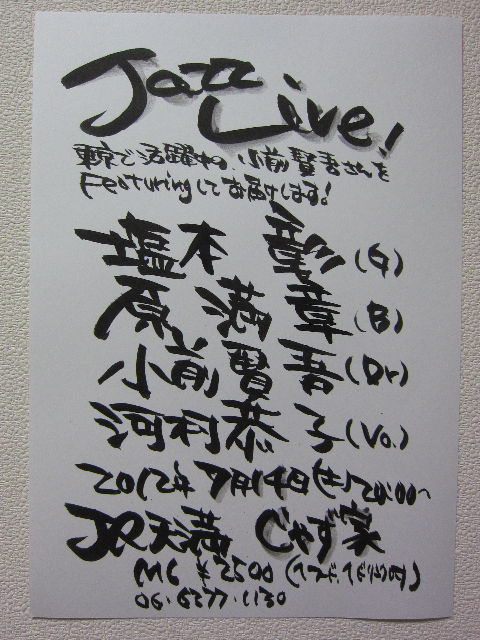 Jazz Live!
東京で活躍中の、小前賢吾さんを
Featuringしてお届けします!
塩本 彰(G)
原 満章(B)
小前賢吾(Dr)
河村恭子(Vo.)
2012年7月14日(土)20:00〜
JR天満 じゃず家
MC ¥2500
06・6277・1130